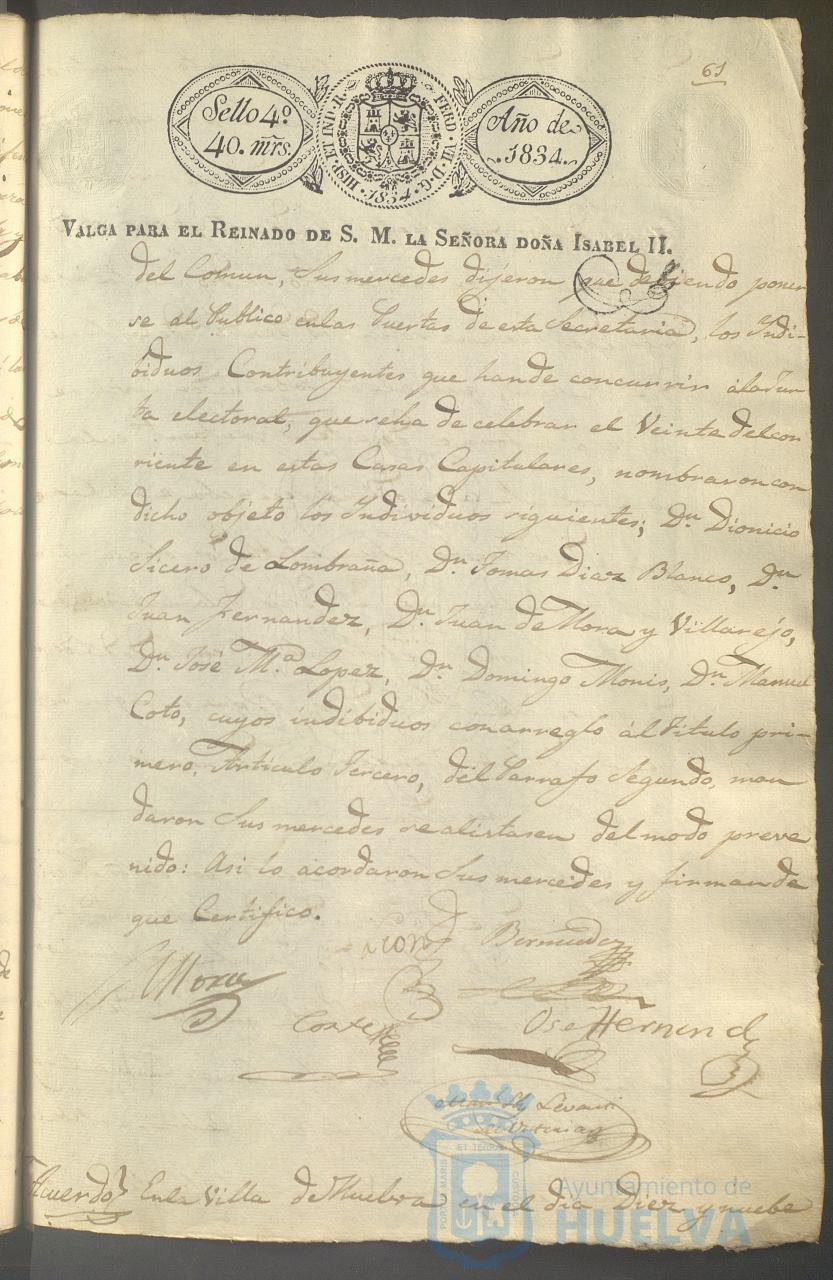 61
Sello 4º
40. mrs.
HISP. ET IND. R. FERD. VII. D. G. 1834
Año de
1834.
VALGA PARA EL REINADO DE S. M. LA SEÑORA DOÑA ISABEL II.
del Comun, Sus mercedes dijeron que debiendo poner
se al Publico enlas Puertas de esta Secretaria, los Yndi-
biduos Contribuyentes que hande concurrir álaJun
ta electoral, que seha de celebrar el Veinte delcor
riente en estas Casas Capitulares, nombraron con
dicho objeto los Yndividuos siguientes; Dn. Dionicio
Sicero de Lombraña, Dn. Tomas Diaz Blanco, Dn.
Juan Fernandez, Dn. Juan de Mora y Villarejo,
Dn. José Mª. Lopez, Dn. Domingo Monis, Dn. Manuel
Coto, cuyos indibiduos conarreglo ál Titulo pri-
mero, Articulo Tercero, del Parrafo Segundo, man
daron Sus mercedes se alistasen del modo preve
nido: Asi lo acordaron Sus mercedes y firman de
que Certifico.
Leon Bermudez
Mora
Cortes
Ose Hernend
Acuerdo Enla Villa de Huelva en el dia Diez y nuebe
PORTUS MARIS ET TERRAE CUSTODIA
Ayuntamiento de
HUELVA